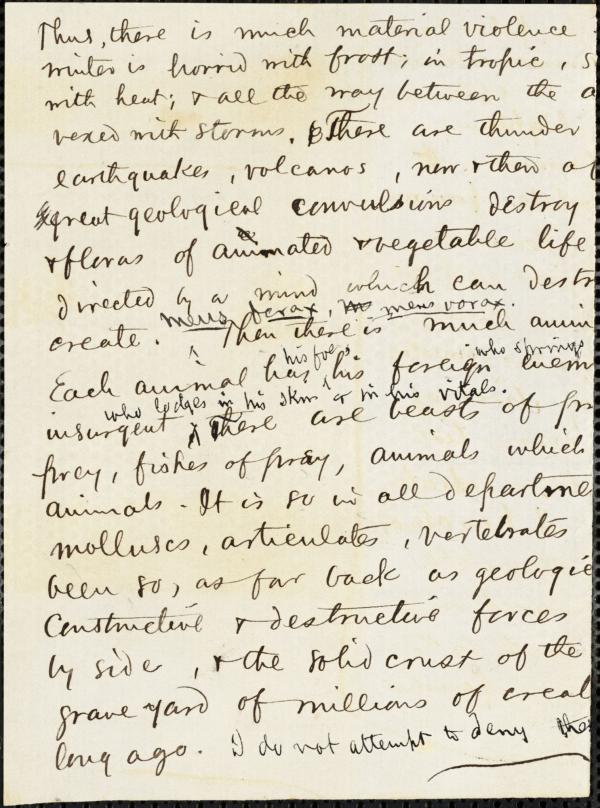 Thus, there is much material violence
winter is horrid with frost; in tropic, s
with heat; & all the way between the a
vexed with storms. There are thunder
earthquakes, volcanos, now & then a
great geological convulsions destroy
& floras of animated & vegetable life
directed by a mind which can destr
mens ferax, mens vorax.
create. Then there is much anim
his foes, who springs
Each animal has his foreign enem
who lodges in his skin or in his vitals.
insurgent There are beasts of pr
prey, fishes of prey, animals which
animals. It is so in all departme
molluscs, articulates, vertebrates
been so, as far back as geologic
Constructive & destructive forces
by side, & the solid crust of the
grave yard of millions of creat
long ago. I do not attempt to deny